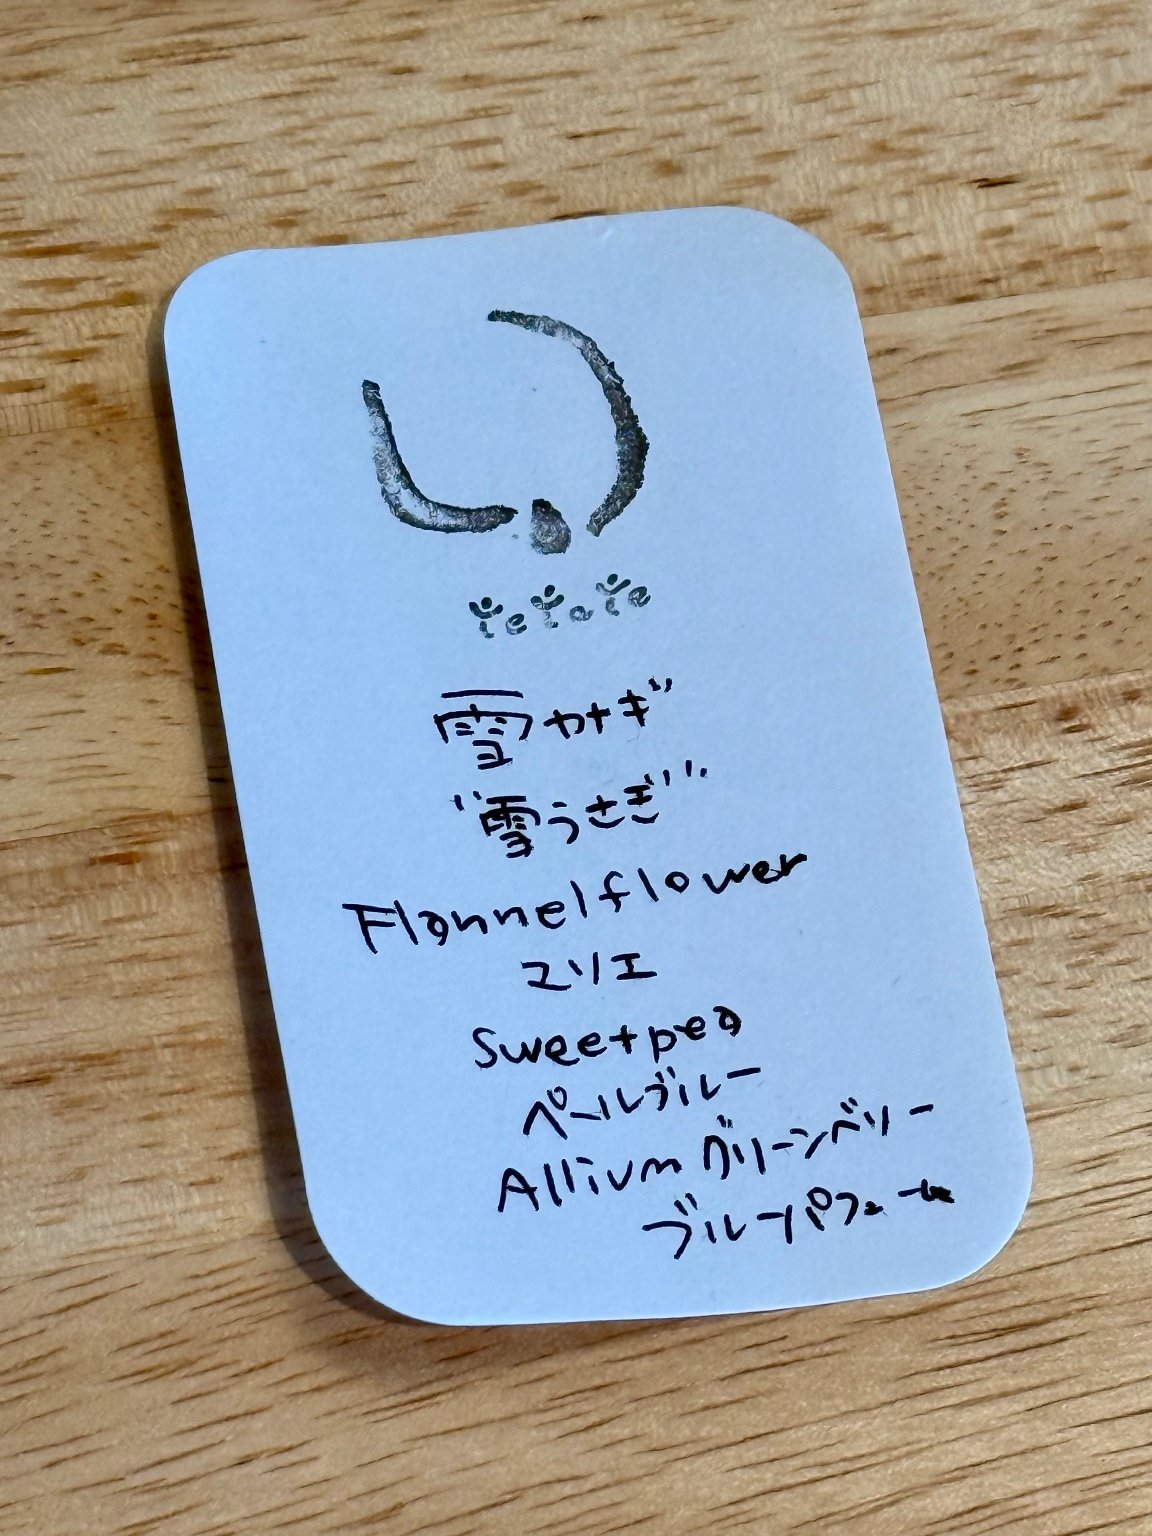 tetote
雪ヤナギ
"雪うさぎ"
Flannelflower
ユリエ
Sweetpea
ペールブルー
Allium グリーンベリー
ブルーパフューム